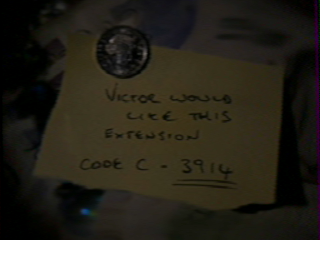 VICTOR WOULD
LIKE THIS
EXTENSION
CODE C - 3914